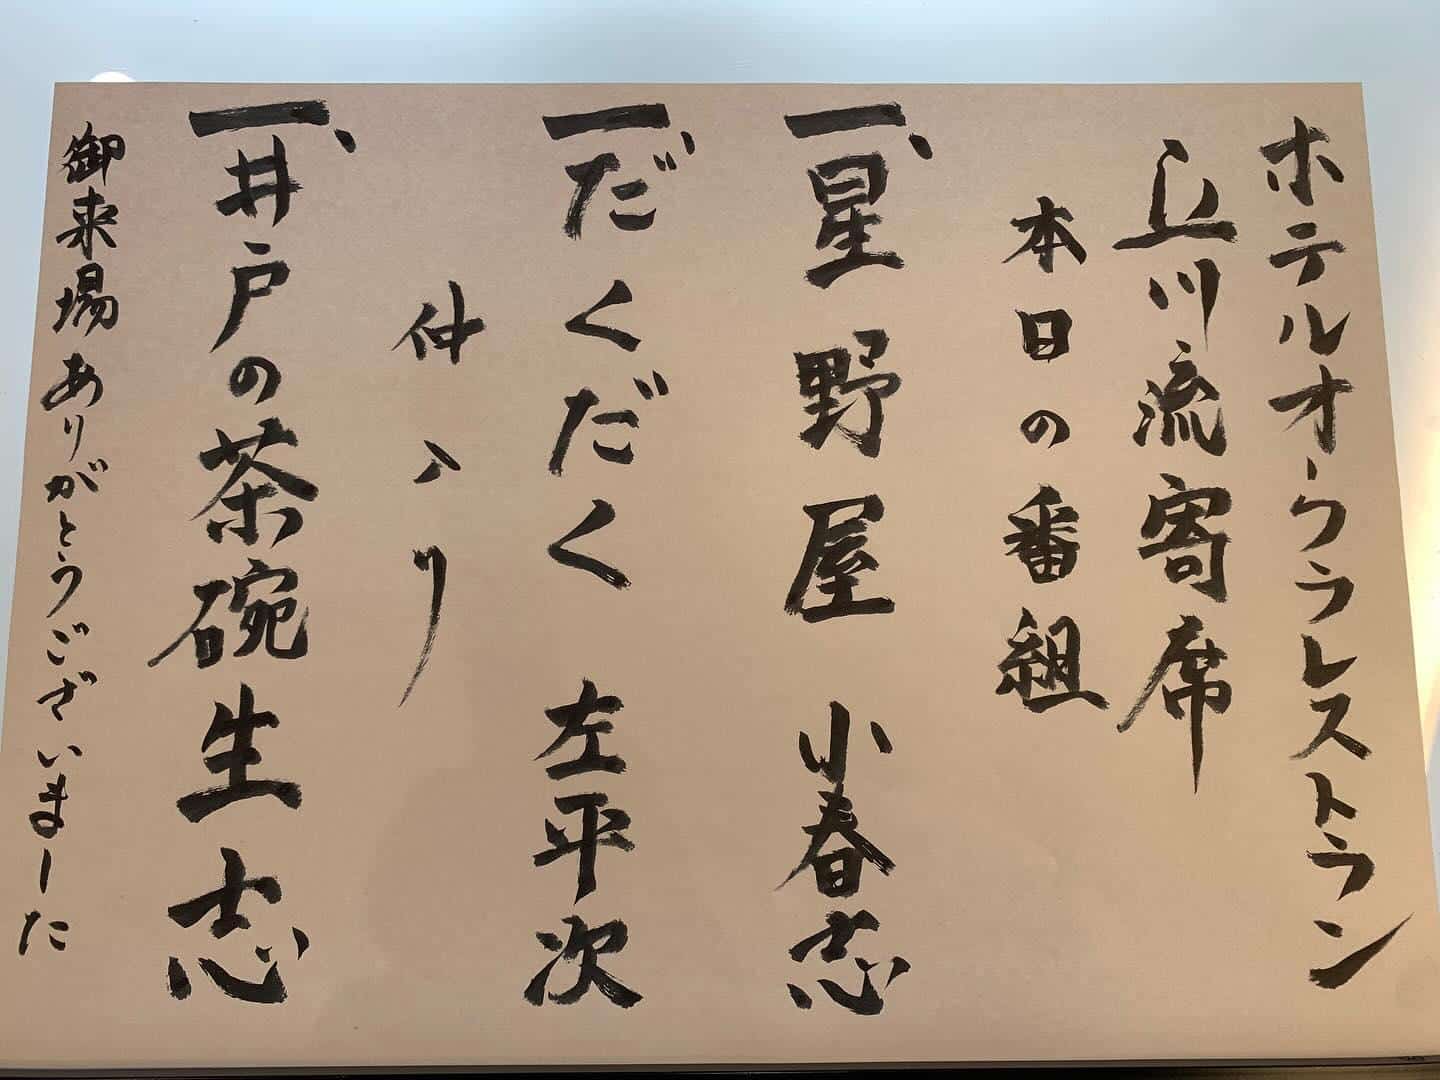 ホテルオークラレストラン
立川流寄席
本日の番組
一、星野屋 小春志
一、だくだく 左平次
仲入り
一、井戸の茶碗 生志
御来場ありがとうございました